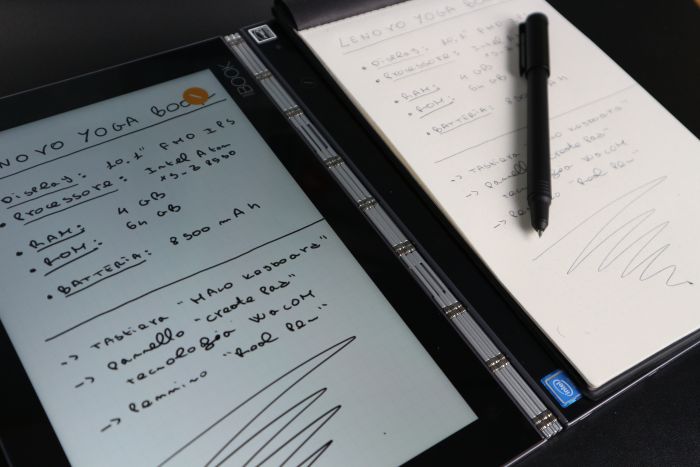 LENOVO YOGA BOOK
DISPLAY: 10.1" FHD IPS
PROCESSORE: Intel Atom
x5-Z8550
RAM: 4 GB
ROM: 64 GB
BATTERIA: 8500 mAh
-> TASTIERA "HALO KEYBOARD"
-> PANNELLO "CREATE PAD"
TECNOLOGIA WACOM
-> PENNINO "REAL PEN"
BOOK
LENOVO YOGA BOOK
DISPLAY: 10.1" FHD
PROCESSORE: Intel
RAM: 4 GB
ROM: 64 GB
BATTERIA: 8500 mAh
-> TASTIERA "HALO KEYBOARD"
-> PANNELLO "CREATE PAD"
TECNOLOGIA WACOM
"REAL PEN"
intel